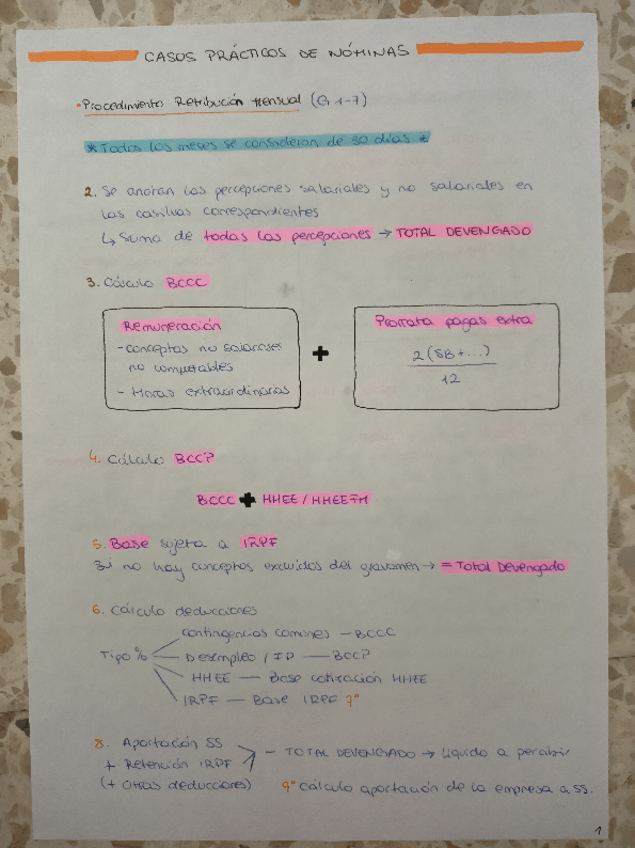 CASOS PRÁCTICOS DE NÓMINAS
• Procedimiento Retribución mensual (G 1-7)
* Todos los meses se consideran de 30 días *
2. Se anotan las percepciones salariales y no salariales en
las casillas correspondientes
↳ Suma de todas las percepciones → TOTAL DEVENGADO
3. Cálculo BCCC
Remuneración
- conceptos no salariales
no computables
- Horas extraordinarias
+
Prorrata pagas extra
2 (SB + ...)
12
4. Cálculo BCCP
BCCC + HHEE / HHEEFM
5. Base sujeta a IRPF
Si no hay conceptos excluidos del gravamen → = Total Devengado
6. Cálculo deducciones
Tipo %
contingencias comunes — BCCC
Desempleo / FP — BCCP
HHEE — Base cotización HHEE
IRPF — Base IRPF 7º
8. Aportación SS
+ Retención IRPF
(+ Otras deducciones)
- TOTAL DEVENGADO → Líquido a percibir
9º cálculo aportación de la empresa a SS.
1